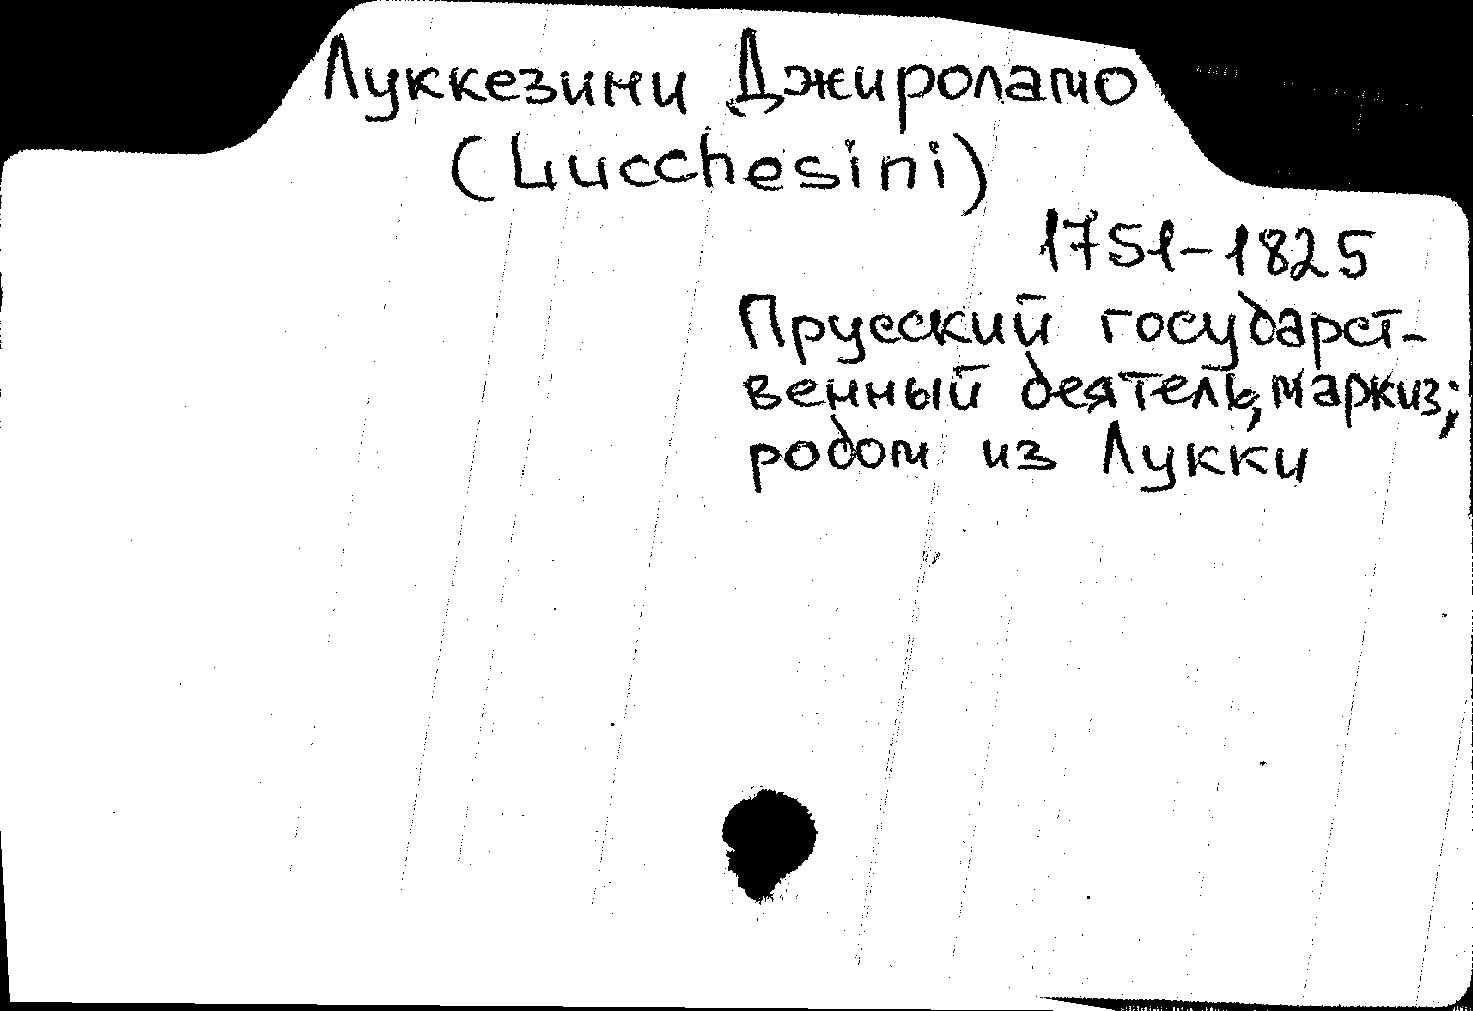 Луккезини Джироламо
(Lucchesini)
1751-1825
Прусский государст-
венный деятель, маркиз;
родом из Лукки